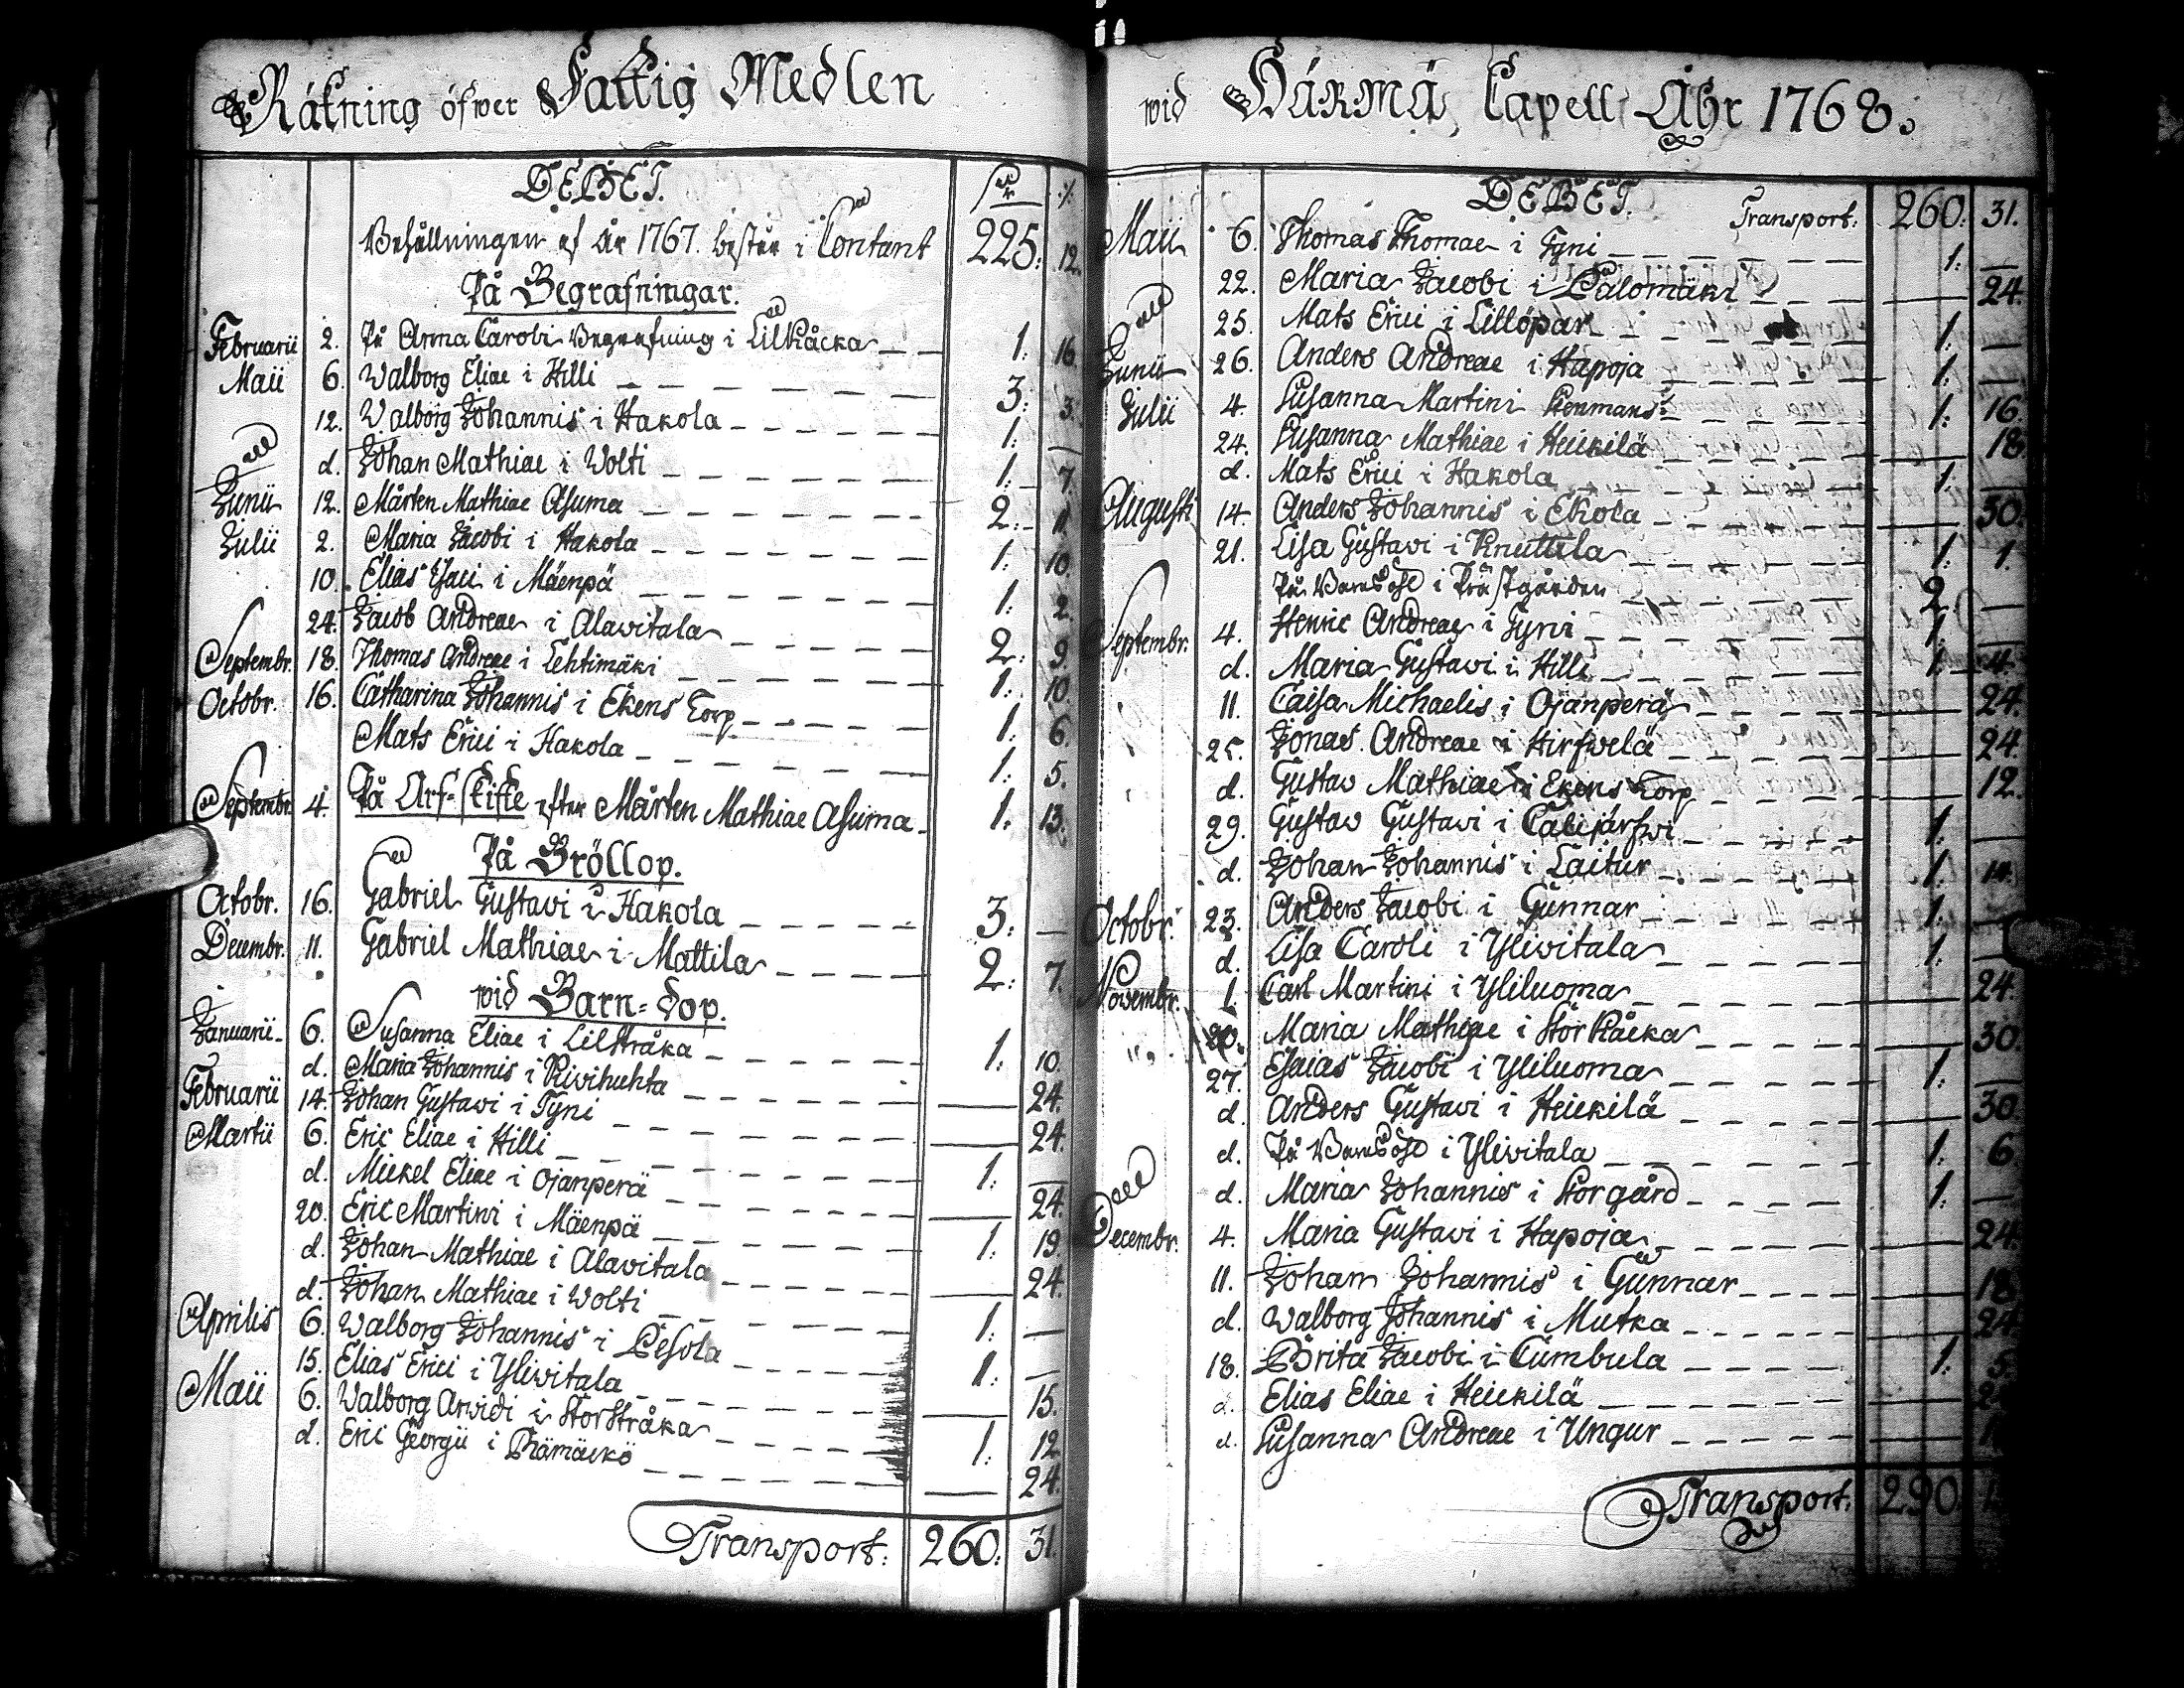 Räkning öfwer Fattig Medlen
DEBET.
Behållningen af år 1767. består i Contant 225: 12.
På Begrafningar.
Februarii 2. På Anna Caroli Begrafning i Lill Kåcka 1: 16
Maii 6. Walborg Eliae i Hilli 3: 3.
12. Walborg Johannis i Hakola 1: —
d. Johan Mathiae i Wolti 1: 7.
Junii 12. Mårten Mathiae Asuma 2: 11
Julii 2. Maria Jacobi i Hakola 1: 10.
10. Elias Esaci i Mäenpä 1: 2.
24. Jacob Andreae i Alawitala 2: 9.
Septembr. 18. Thomas Andreae i Lehtimäki 1: 10.
Octobr. 16. Catharina Johannis i Ekens Torp 1: 6.
Mats Erici i Hakola 1: 5.
Septembr. 4. På Arf-skifte efter Mårten Mathiae Asuma 1: 13.
På Bröllop.
Octobr. 16. Gabriel Gustavi i Hakola 3: —
Decembr. 11. Gabriel Mathiae i Mattila 2: 7.
wid Barn-dop.
Januarii 6. Susanna Eliae i Lillstråka 1: 10
d. Maria Johannis i Kivihuhta — 24.
Februarii 14. Johan Gustavi i Tyni — 24.
Martii 6. Eric Eliae i Hilli 1: —
d. Mickel Eliae i Ojanperä — 24.
20. Eric Martini i Mäenpä 1: 19.
d. Johan Mathiae i Alavitala — 24.
d. Johan Mathiae i Wolti 1: —
Aprilis 6. Walborg Johannis i Pesola 1: —
15. Elias Erici i Ylivitala — 15.
Maii 6. Walborg Arvidi i Storstråka 1: 12.
d. Eric Georgii i Rämäckö — 24.
Transport: 260: 31.
wid Härmä Capell Åhr 1768.
DEBET. Transport: 260: 31.
Maii 6. Thomas Thomae i Tyni 1: —
22. Maria Jacobi i Palomäki — 24.
25. Mats Erici i Lillöpar 1: —
Junii 26. Anders Andreae i Hapoja 1: —
Julii 4. Susanna Martini Stenmans 1: 16
24. Susanna Mathiae i Heickilä — 18
d. Mats Erici i Hakola 1: —
Augusti 14. Anders Johannis i Ekola — 30.
21. Lisa Gustavi i Knuttila 1: 1.
På Barnsöhl i Prästgården 2. —
Septembr. 4. Henric Andreae i Tyni 1. —
d. Maria Gustavi i Hilli 1. 4.
11. Caisa Michaelis i Ojanperä — 24.
25. Jonas Andreae i Hirfwelä — 24.
d. Gustav Mathiae i Ekens Torp — 12.
29. Gustav Gustavi i Calijärfwi 1: —
d. Johan Johannis i Laitur 1: 14.
Octobr. 23. Anders Jacobi i Gunnar 1: —
d. Lisa Caroli i Ylivitala 1: —
Novembr. 1. Carl Martini i Yliluoma — 24.
20. Maria Mathiae i Stor Kåcka — 30.
27. Esaias Jacobi i Yliluoma 1: —
d. Anders Gustavi i Heickilä — 30.
d. På Barnsöhl i Ylivitala 1: 6.
d. Maria Johannis i Storgård 1: —
Decembr. 4. Maria Gustavi i Hapoja — 24.
11. Johan Johannis i Gunnar — 18.
d. Walborg Johannis i Mutka — 24.
18. Brita Jacobi i Cumbula 1: 5.
d. Elias Eliae i Heickilä —
d. Susanna Andreae i Ungur —
Transport: 290